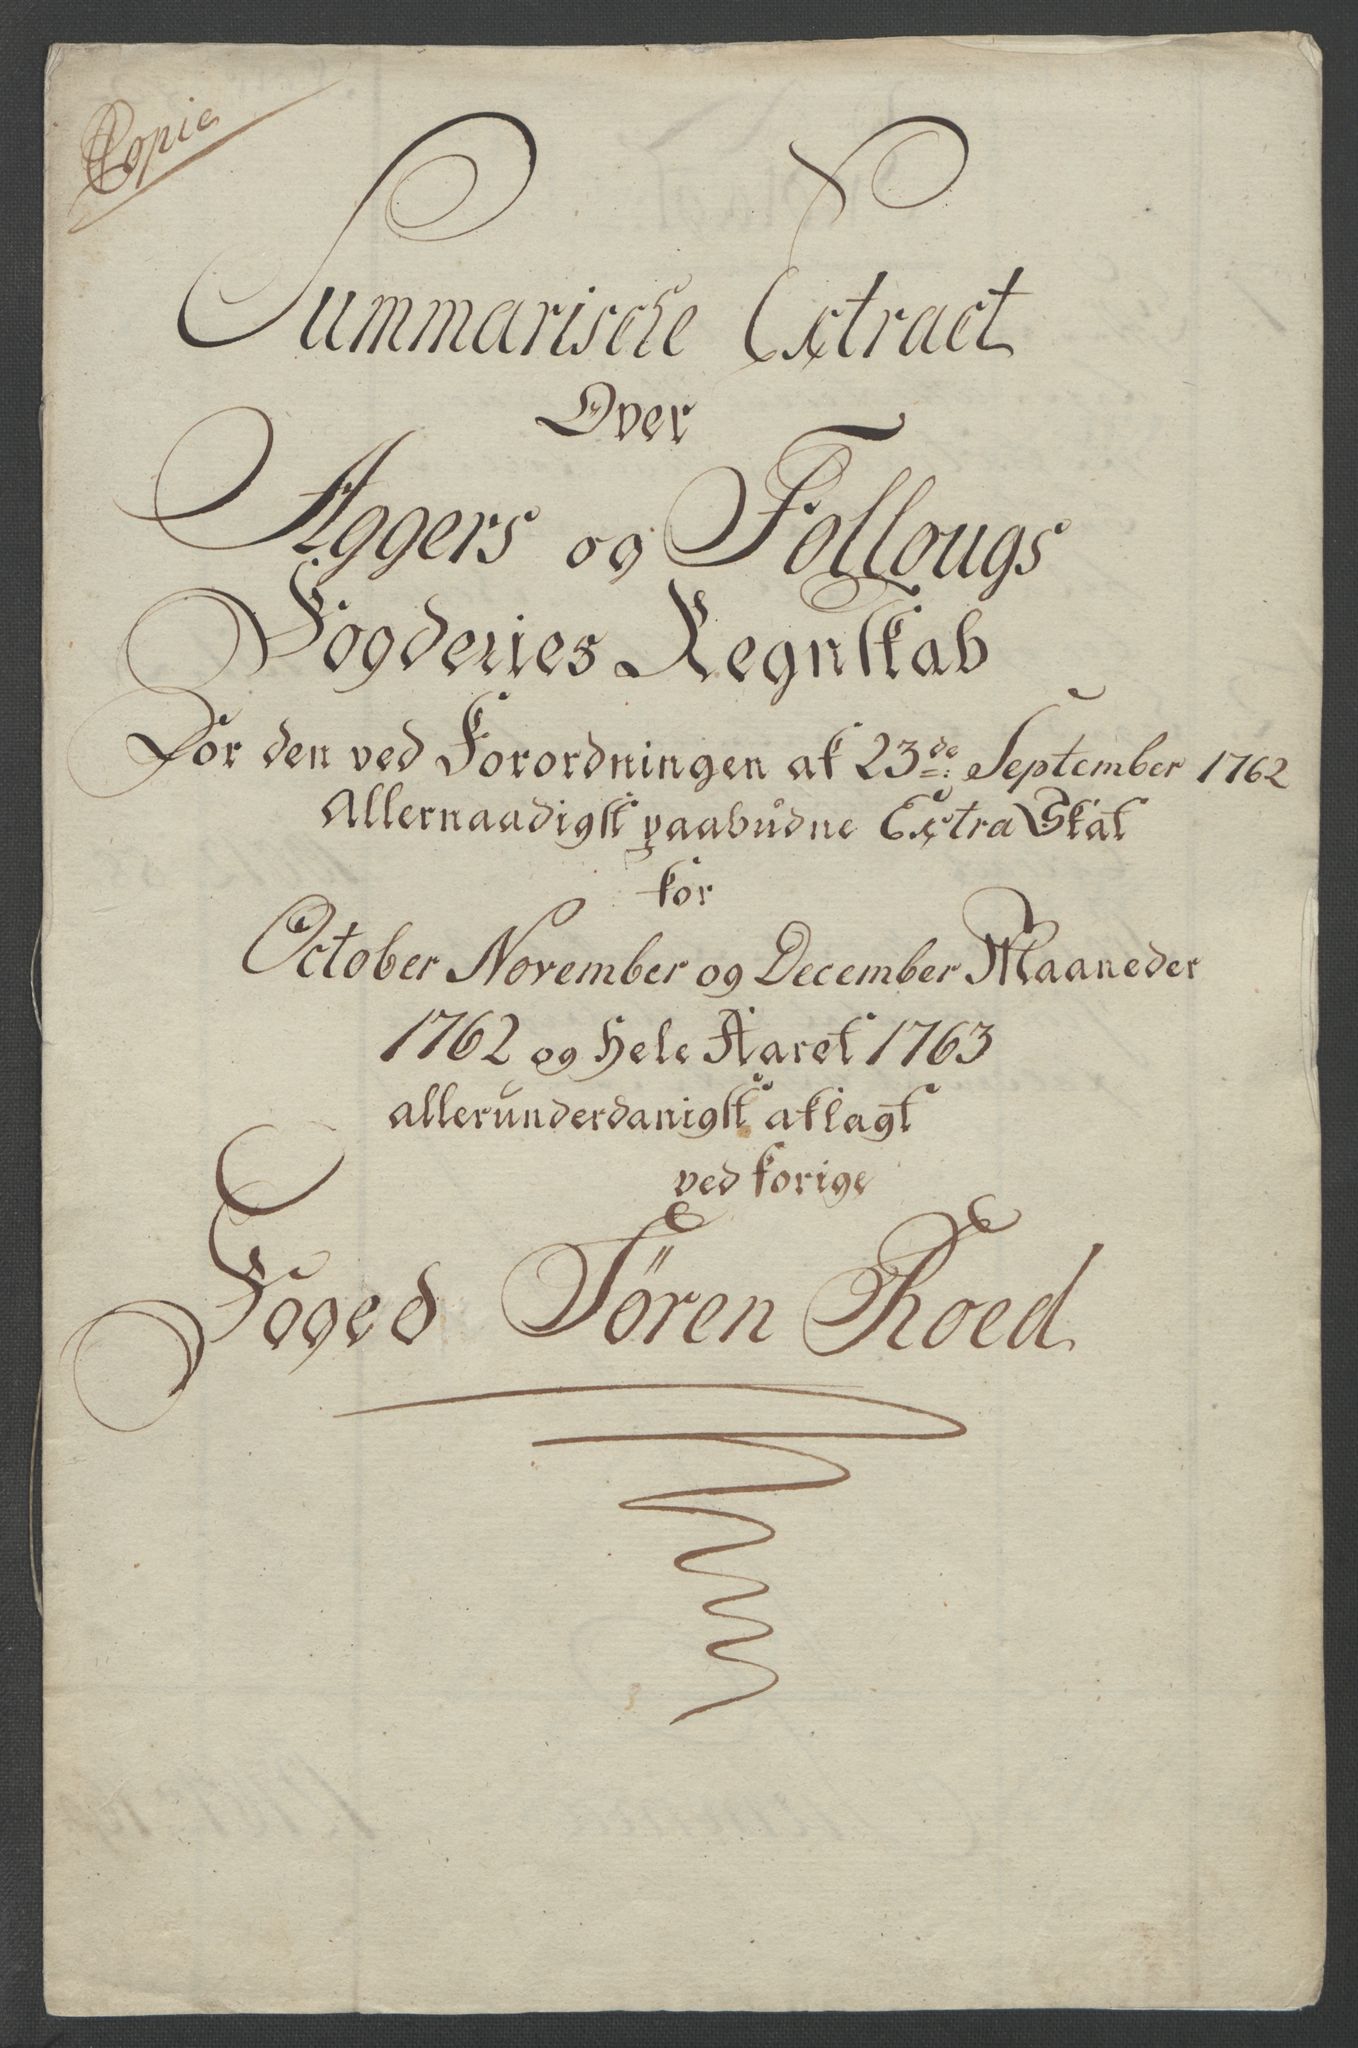 Copie
Summarische Extract
Over
Aggers og Follougs
Fogderies Regnskab
For den ved Forordningen af 23de: September 1762
Allernaadigst paabudne Extra Skat
for
October November og December Maaneder
1762 og Hele Aaret 1763
allerunderdanigst aflagt
ved forige
Foged Sören Roed